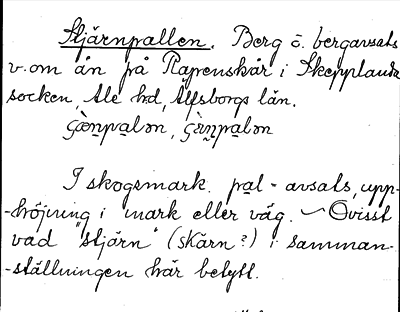 Stjärnpallen. Berg o. bergavsats
v. om ån på Rapenskår i Skepplanda
socken, Ale hd, Älfsborgs län.
I skogsmark. pal = avsats, upp-
-höjning i mark eller väg. ~ Ovisst
vad "stjärn" (skärn?) i samman-
-ställningen här betytt.